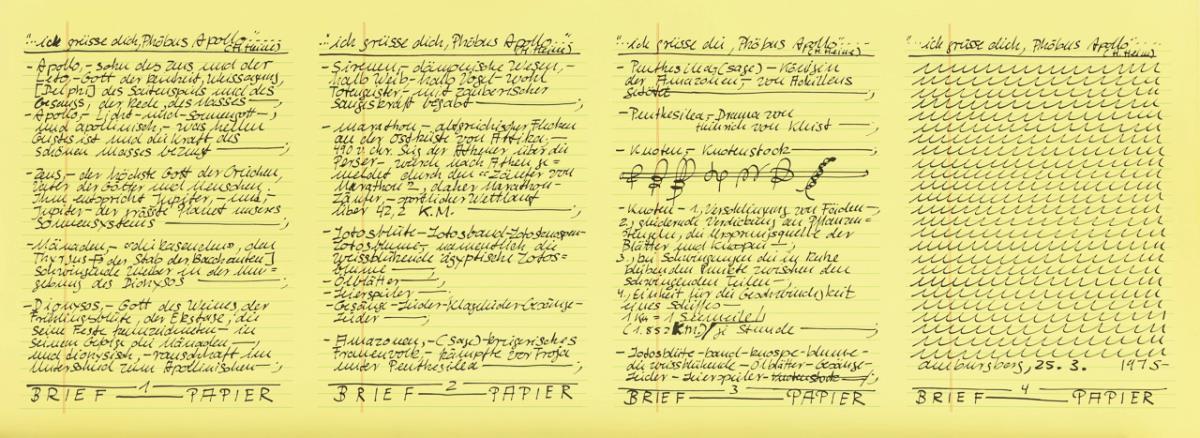 "...ich grüsse dich, Phöbus Apollo".....
(H. Heine)
- Apollo, – sohn des Zeus und der
Leto, – Gott der
[Delphi] des Saitenspiels und des
Gesangs, der Rede, des Masses ——;
- Apollo, – Licht – und – Sonnengott –,
und apollinisch, – was hellen
Geistes ist und die Kraft des
schönen Masses bezeugt ——;
- Zeus, – der höchste Gott der Griechen,
Vater der Götter und Menschen.
Ihm entspricht Jupiter, – und, –
Jupiter – der grösste Planet unseres
Sonnensystems ——;
- Mänaden, – »die Rasenden«, den
Thyrsus – [der Stab der Bacchanten]
schwingende Weiber in der Um =
gebung des Dionysos ——;
- Dionysos, – Gott des Weines, der
Frühlingsblüte, der Ekstase, die
seine Feste kennzeichneten – in
seinem Gefolge die Mänaden –;
und dionysisch, – rauschhaft im
Unterschied zum Apollinischen –;
BRIEF —— 1 —— PAPIER
"...ich grüsse dich, Phöbus Apollo".....
(H. Heine)
- Sirenen, – dämonische Wesen, –
halb Weib – halb Vogel – wohl
Totengeister – mit zauberischer
sangeskraft begabt ——;
- Marathon, – altgriechischer Flecken
an der Ostküste von Attika,
490 v. Chr. Sieg der Athener über die
Perser – wurde nach Athen ge =
meldet durch den "Läufer von
Marathon", daher Marathon –
Läufer, – sportlicher Wettlauf
über 42,2 K.M. ——;
- Lotosblüte – Lotosband – Lotosknospen –
Lotosblume, – namentlich die
weissblühende ägyptische Lotos =
blume ——;
- Ölblätter ——;
- Leierspieler ——;
- Gesänge – Lieder – Klagelieder – Gesänge –
Lieder ——;
- Amazonen, – (Sage) – kriegerisches
Frauenvolk, – kämpfte vor Troja
unter Penthesilea ——;
BRIEF —— 2 —— PAPIER
"...ich grüsse dich, Phöbus Apollo".....
(H. Heine)
- Penthesilea (Sage) – Königin
der Amazonen, – von Achilleus
getötet ——;
- Penthesilea, – Drama von
Heinrich von Kleist ——;
- Knoten, – Knotenstock ——;
- Knoten – 1, Verschlingung von Fäden –,
2, gliedernde Verdickung an Pflanzen =
stengeln, die Ursprungsstelle der
Blätter und Knospen –;
3, bei Schwingungen die in Ruhe
bleibenden Punkte zwischen den
schwingenden Teilen –,
4, Einheit für die Geschwindigkeit
eines Schiffes –
1 Kn = 1 Seemeile/
(1.852 Km)/ je Stunde ——;
- Lotosblüte – band – knospe – blume –
die weissblühende – Ölblätter – Gesänge –
Lieder – Leierspieler – Knotenstock ——;
BRIEF —— 3 —— PAPIER
"...ich grüsse dich, Phöbus Apollo".....
(H. Heine)
25. 3. 1975 –
BRIEF —— 4 —— PAPIER